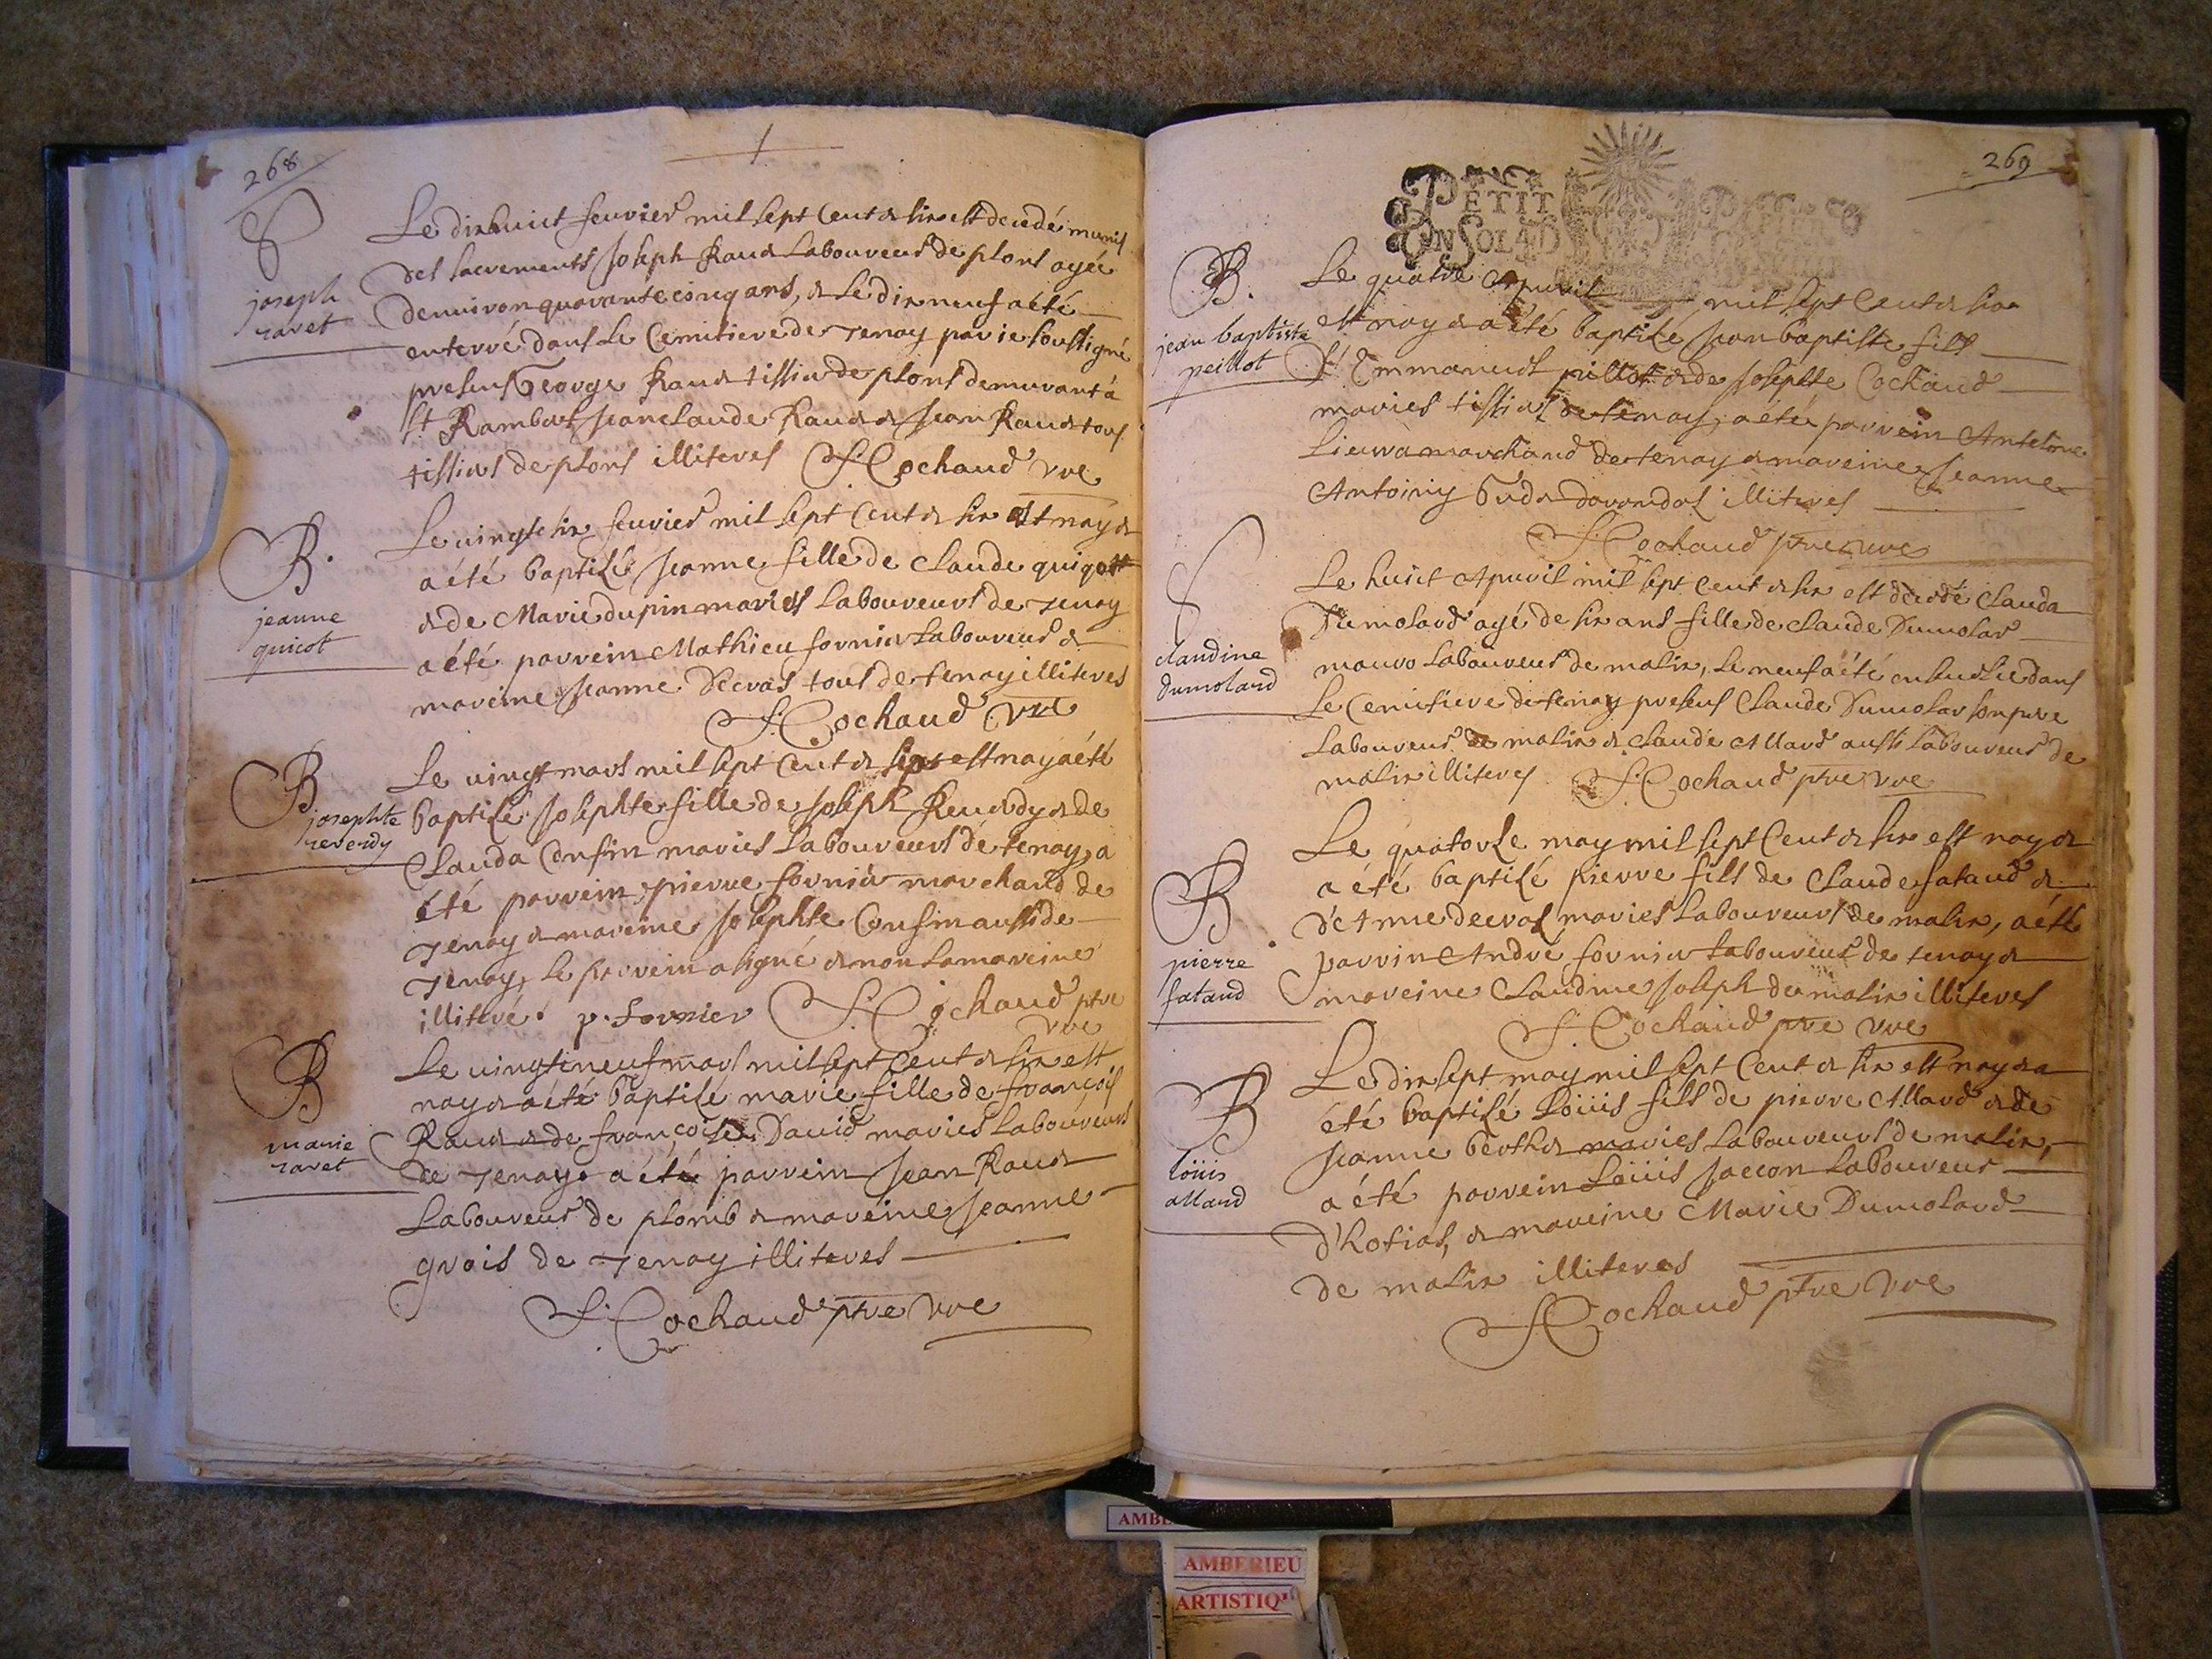 268
joseph
ravet
Le dixhuict feuvier mil sept cent & six est décédé munis
des sacrements Joseph Raud Laboureur de plons agée
denuiron quarante cinq ans, & Le dix neuf a été
enterré dans Le Cemitiere de Tenay par ie soussigné
presens George Raud tissier de plons demurant à
St Rambert jean claude Raud & jean Raud tous
tissiers de plons illiteres S. Cochaud vre
B.
jeanne
quicot
Le uingt six feuvier mil sept cent & six est nay &
a été baptisée jeanne fille de Claude quigot
& de Marie dupin maries Laboureurs de Tenay
a été parrein Mathieu fornier Laboureur &
mareine jeanne Decras tous de tenay illiteres
S. Cochaud vre
B
josephte
reverdy
Le uingt mars mil sept cent & six est nay a été
baptisé josephte fille de joseph Reuerdy & de
Clauda Confin maries Laboureurs de tenay, a
été parrein pierre fornier marchand de
Tenay & mareine josephte Confin aussi de
Tenay, Le parrein a signé & non La mareine
illiteré. p. fornier S. Cochaud ptre
vre
B
marie
ravet
Le uingt neuf mars mil sept cent & six est
nay & a été baptisé marie fille de françois
Raud & de françoise David maries Laboureurs
de Tenay, a été parrein jean Raud
Laboureur de plomb & mareine jeanne
grois de Tenay illiteres
S. Cochaud ptre vre
269
PETIT
EN SOL 4D
B.
jean baptiste
peillot
Le quatre Apuril mil sept cent & six
est nay & a été baptisé jean baptiste fils
d'Emmanuel pillot & de josephte Cochaud
maries tissiers de tenay, a été parrein Anthelme
Lieura marchand de tenay & mareine jeanne
Antoiny illiteres
S. Cochaud ptre vre
claudine
dumolard
Le huict Apuril mil sept cent & six est décédé Clauda
Dumolard agé de six ans fille de Claude Dumolar
mauro Laboureur de malix, Le neuf a été enseuelie dans
Le Cemitiere de tenay presens Claude Dumolar son pere
Laboureur de malix & Claude Allard aussi Laboureur de
malix illiteres S. Cochaud ptre vre
B
pierre
fataud
Le quatorze may mil sept cent & six est nay &
a été baptisé pierre fils de Claude fataud &
d'Anne decras maries Laboureurs de malix, a été
parrin André fornier Laboureur de tenay &
mareine Claudine joseph de malix illiteres
S. Cochaud ptre vre
B
loüis
allard
Le dix sept may mil sept cent & six est nay & a
été baptisé Loüis fils de pierre Allard & de
jeanne berthet maries Laboureurs de malix,
a été parrein Loüis jaccon Laboureur
d'hostias, & mareine Marie Dumolard
de malix illiteres
S. Cochaud ptre vre
AMBERIEU
ARTISTIQU